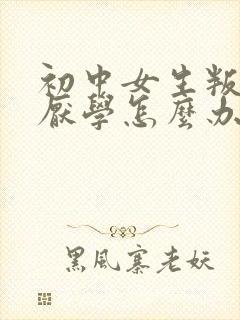 初中女生叛
厭學怎麼办
黑風寨老妖